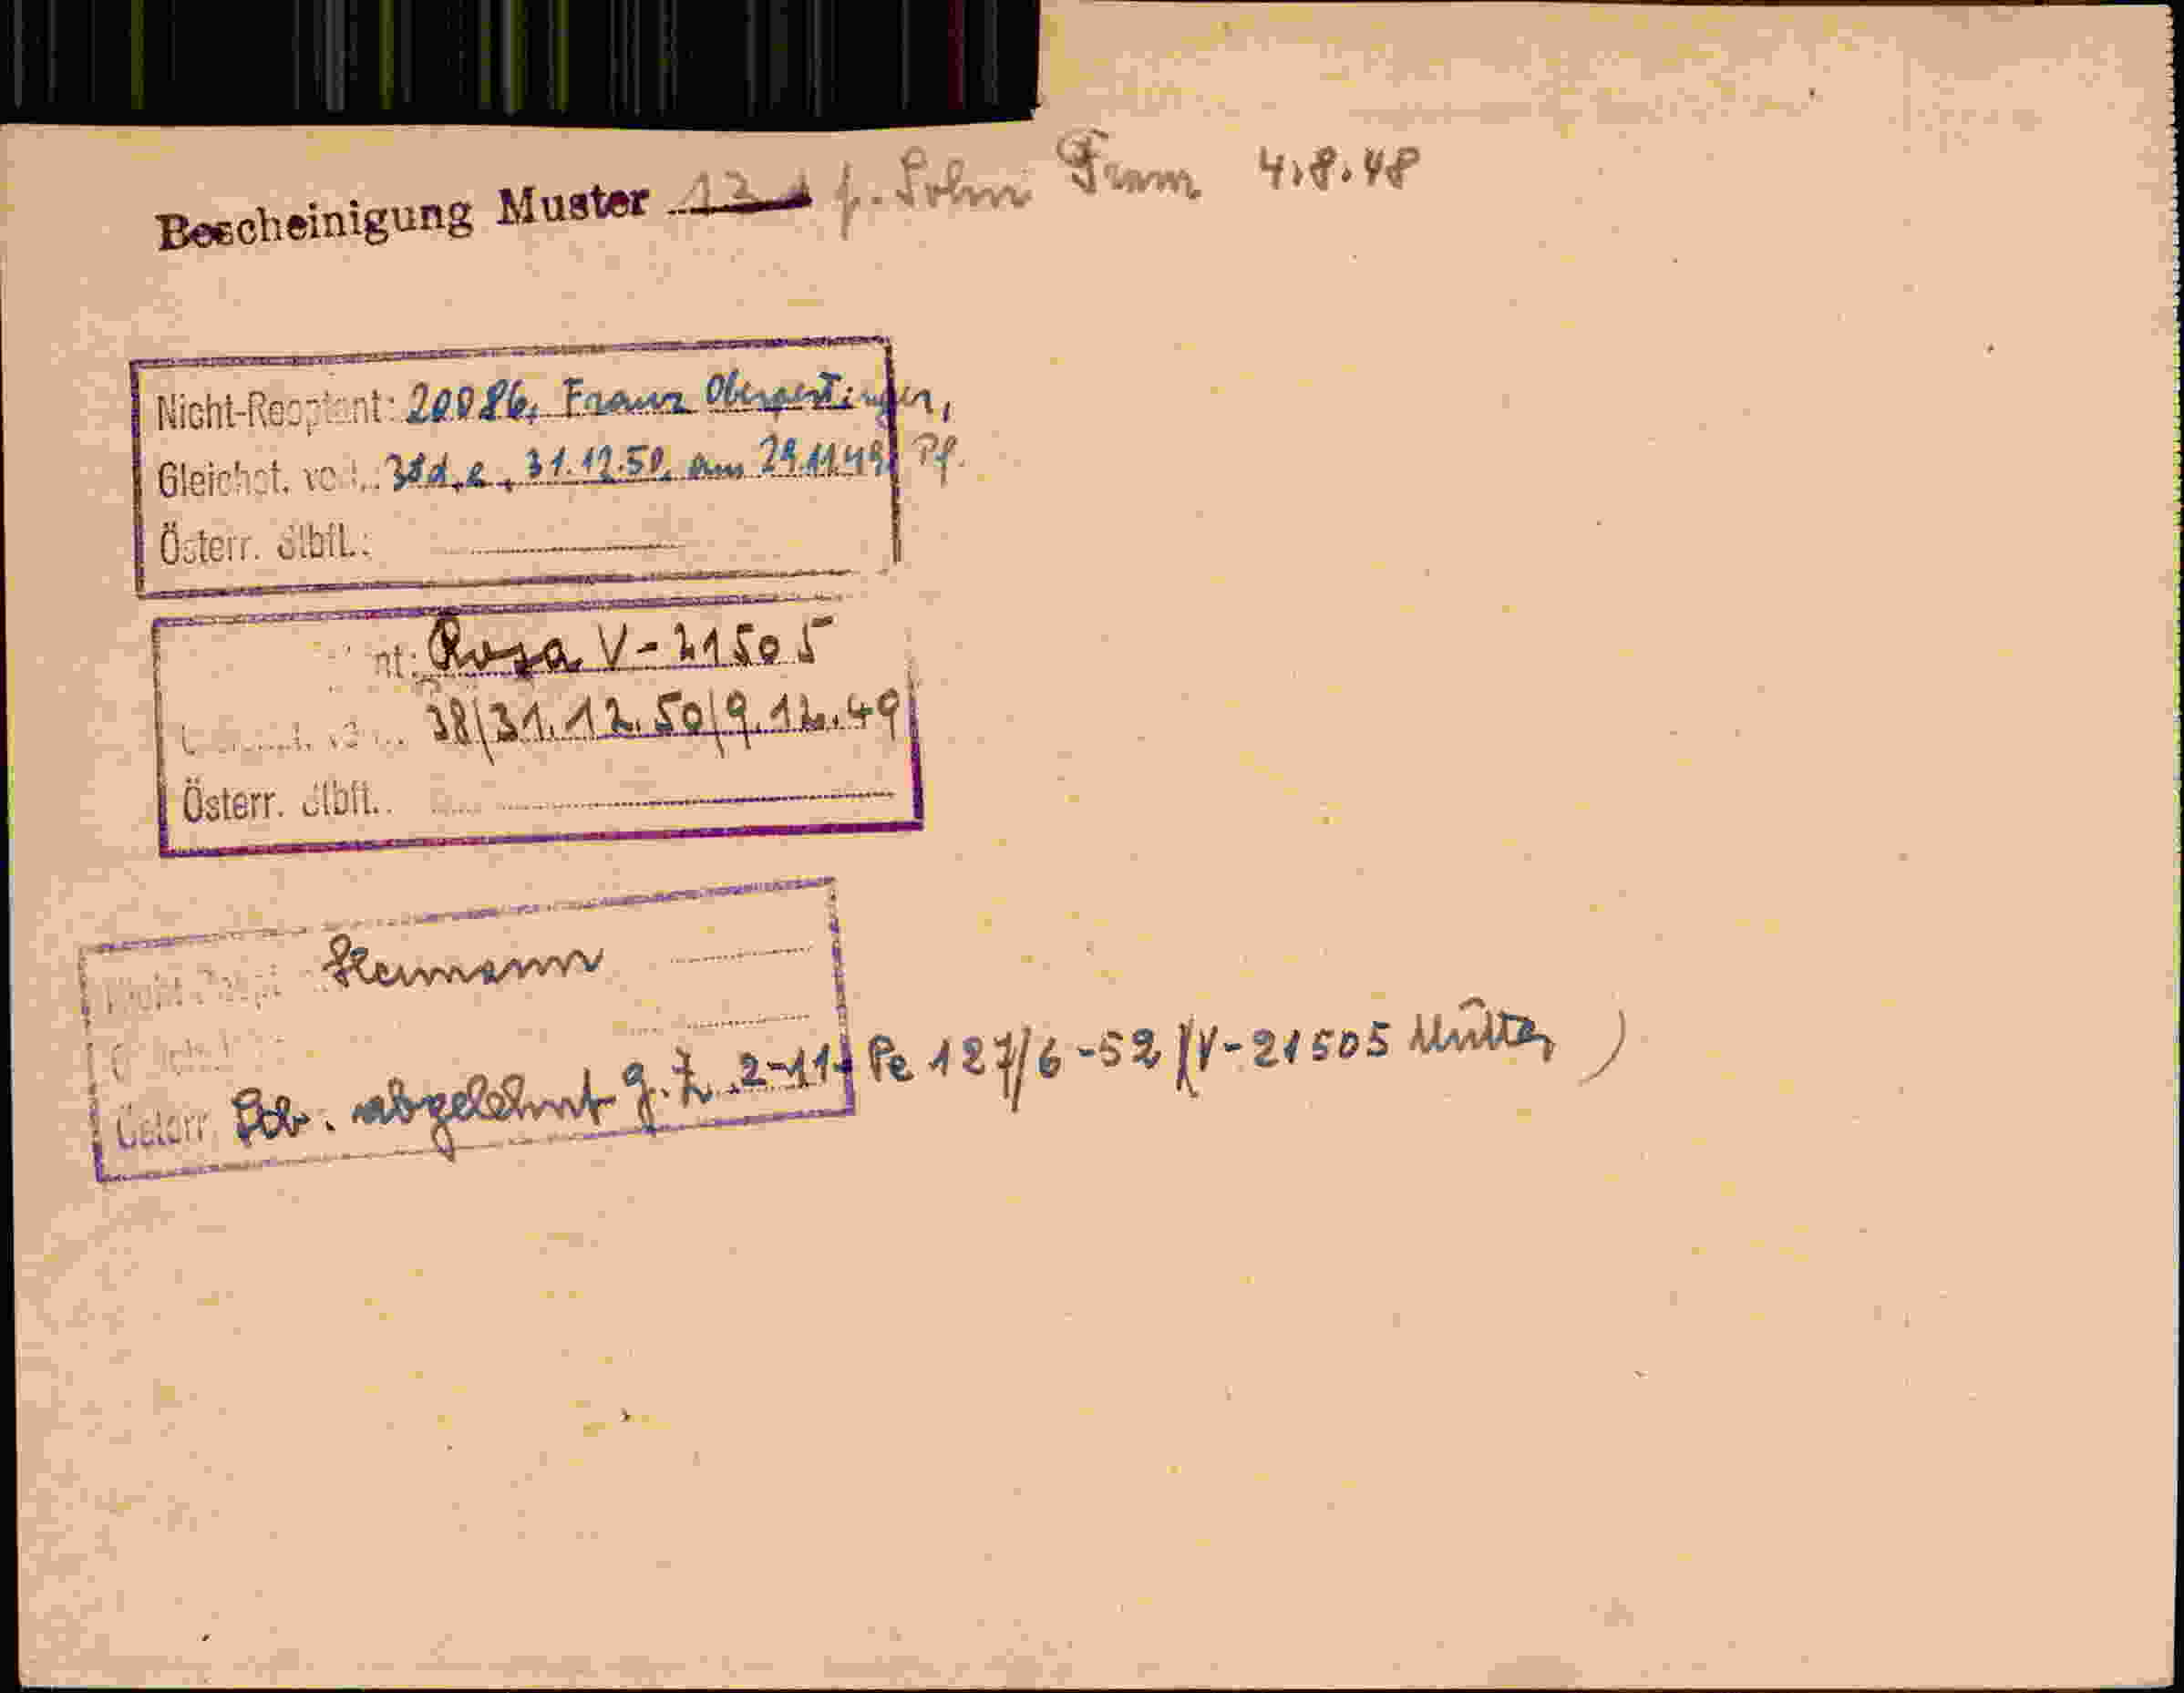 Bescheinigung Muster 12 f. Sohn Franz 4.8.48
Nicht-Reoptant: 20086, Franz Obergertinger,
Gleichst. verl.: 38d.e, 31.12.50, am 29.11.49 Pf.
Österr. Stbft.:
Rosa V-21505
38/31.12.50/9.12.49
Österr. Stbft.:
Hermann
Österr. Stb. abgelehnt g. Z. 2-11 Pe 127/6-52 (V-21505 Mutter)